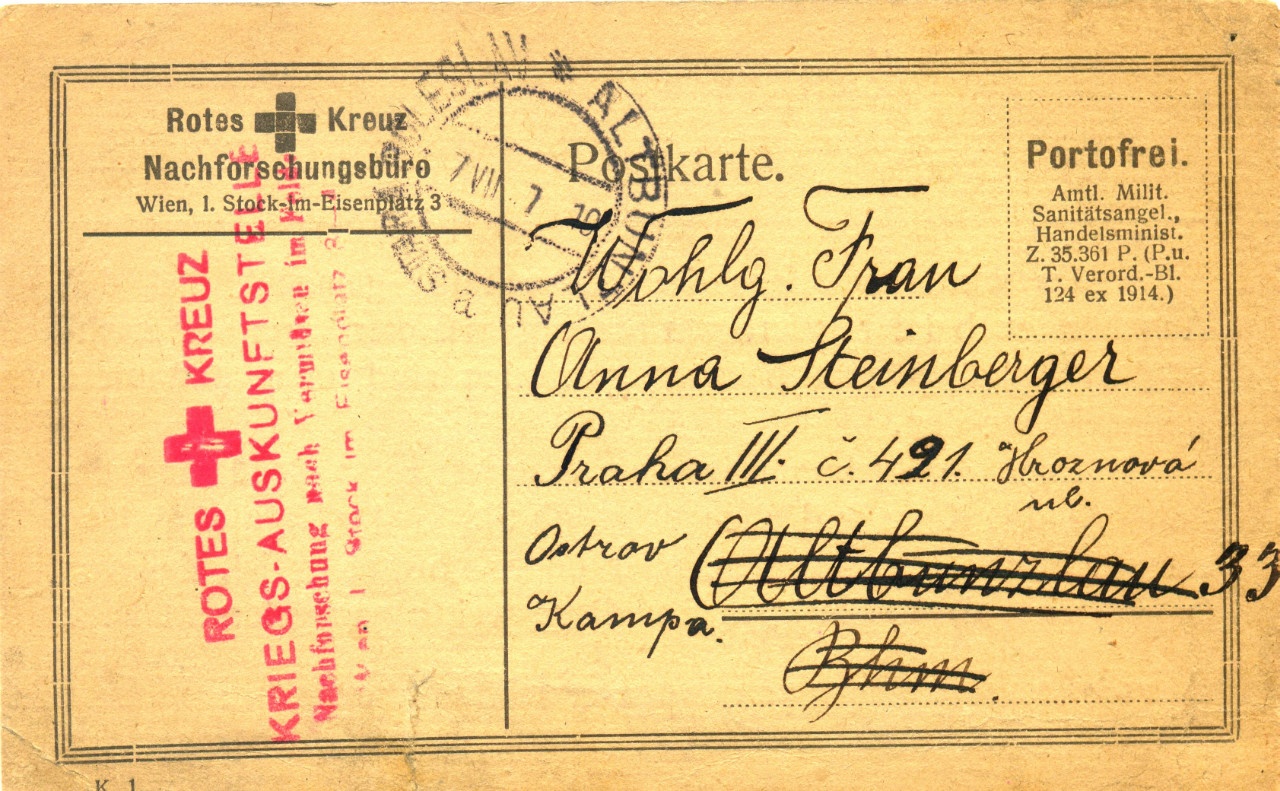 Rotes Kreuz
Nachforschungsbüro
Wien, I. Stock-im-Eisenplatz 3
ROTES KREUZ
KRIEGS-AUSKUNFTSTELLE
Nachforschung nach Vermißten im
Stock im Eisenplatz
ALTBUNZLAU * BOLESLAV a
7 VIII
Postkarte.
Portofrei.
Amtl. Milit.
Sanitätsangel.,
Handelsminist.
Z. 35.361 P. (P.u.
T. Verord.-Bl.
124 ex 1914.)
Wohlg. Frau
Anna Steinberger
Praha III. č. 421. Hroznová
ul.
Ostrov Altbunzlau 33
Kampa.
Bhm.
K 1